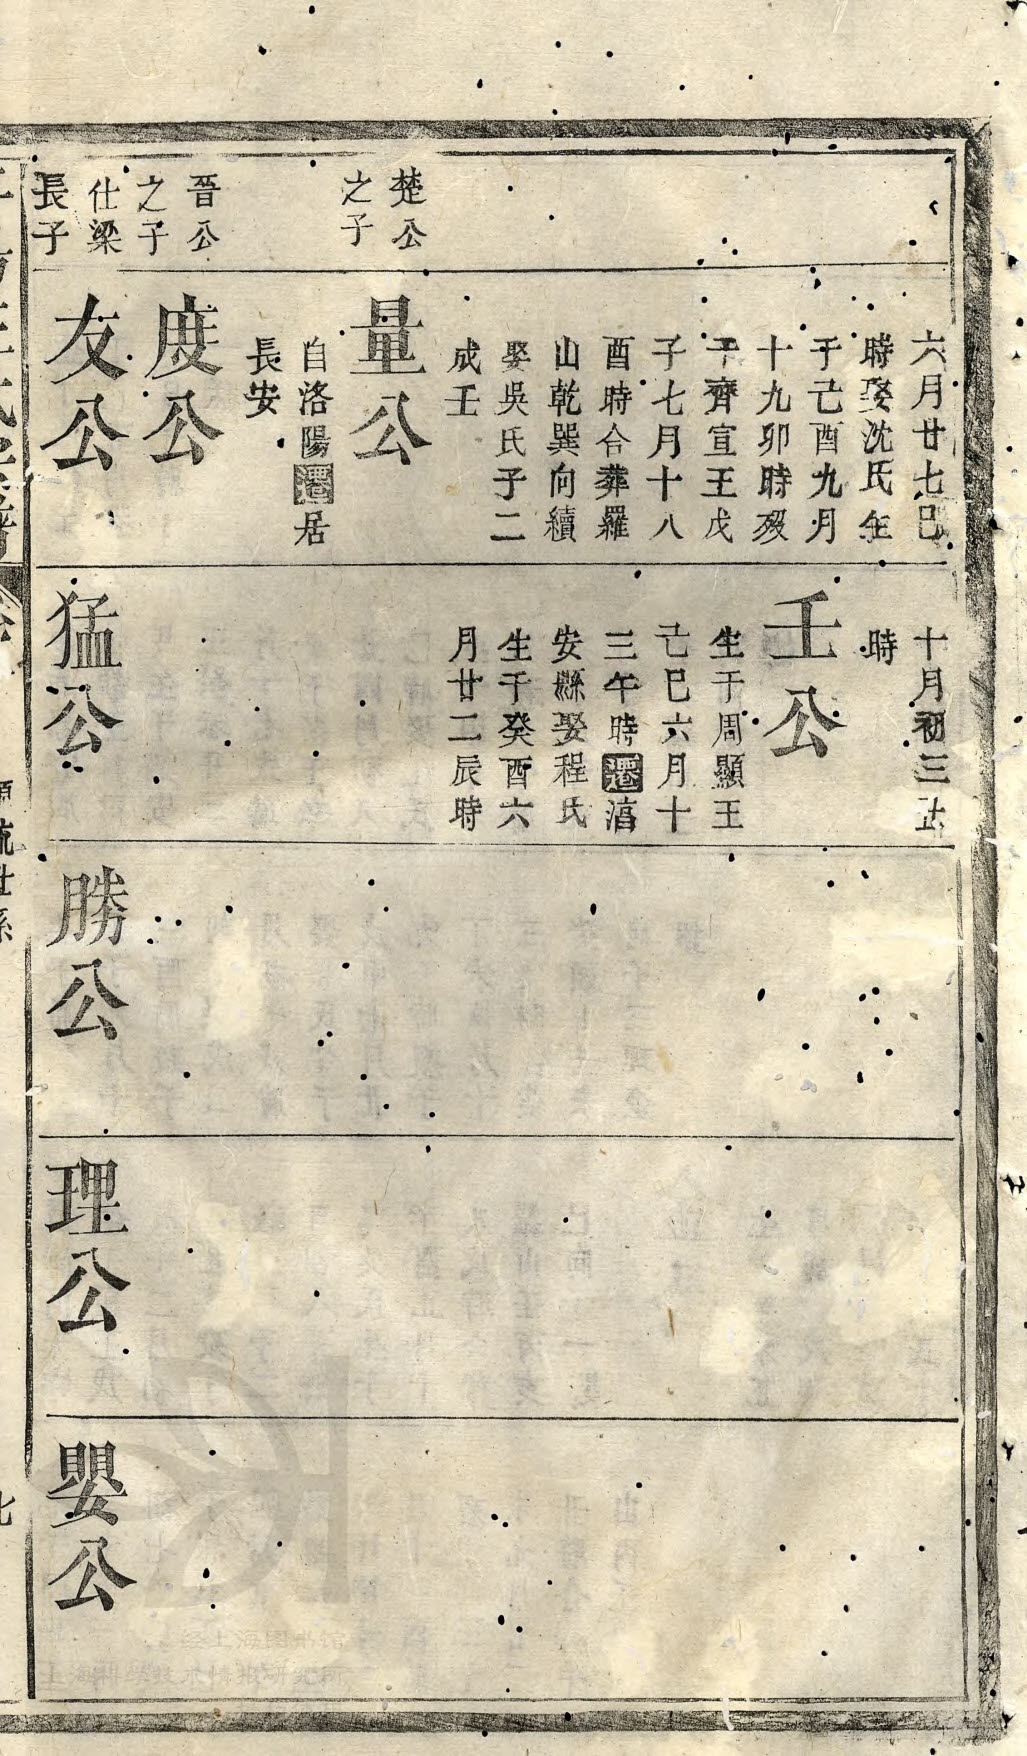 楚公
之子
晉公
之子
仕梁
長子
六月廿七巳
時娶沈氏生
于己酉九月
十九卯時歿
于齊宣王戊
子七月十八
酉時合葬羅
山乾巽向續
娶吳氏子二
成壬
量公
自洛陽遷居
長安
度公
友公
十月初三
時
壬公
生于周顯王
己巳六月十
三午時遷
安縣娶程氏
生于癸酉六
月廿二辰時
猛公
勝公
理公
嬰公